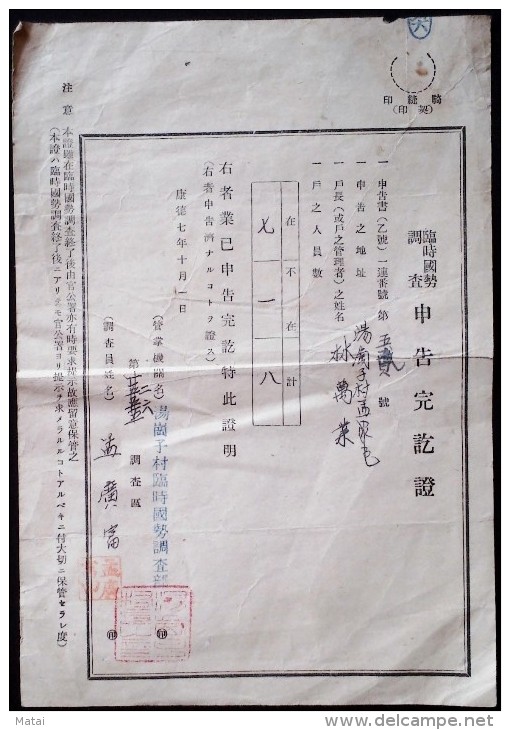 騎縫印
(契印)
臨時國勢調査申告完訖證
一申告書(乙號)一連番號 第 五 號
一申告之地址 湯崗子村孟家屯
一戶長(或戶之管理者)之姓名 林萬
一戶之人員數
在 不在 計
七 一 八
右者業已申告完訖特此證明
(右者申告濟ナルコトヲ證ス)
康德七年十月一日
(管掌機關名) 湯崗子村臨時國勢調査部
第 調査區
(調査員氏名) 孟廣富 ㊞
注意 本證雖在臨時國勢調査終了後由官公署亦有時要求提示故應留意保管之
(本證ハ臨時國勢調査終了後ニアリテモ官公署ヨリ提示ヲ求メラルルコトアルベキニ付大切ニ保管セラレ度)
Matai
www.delcampe.net